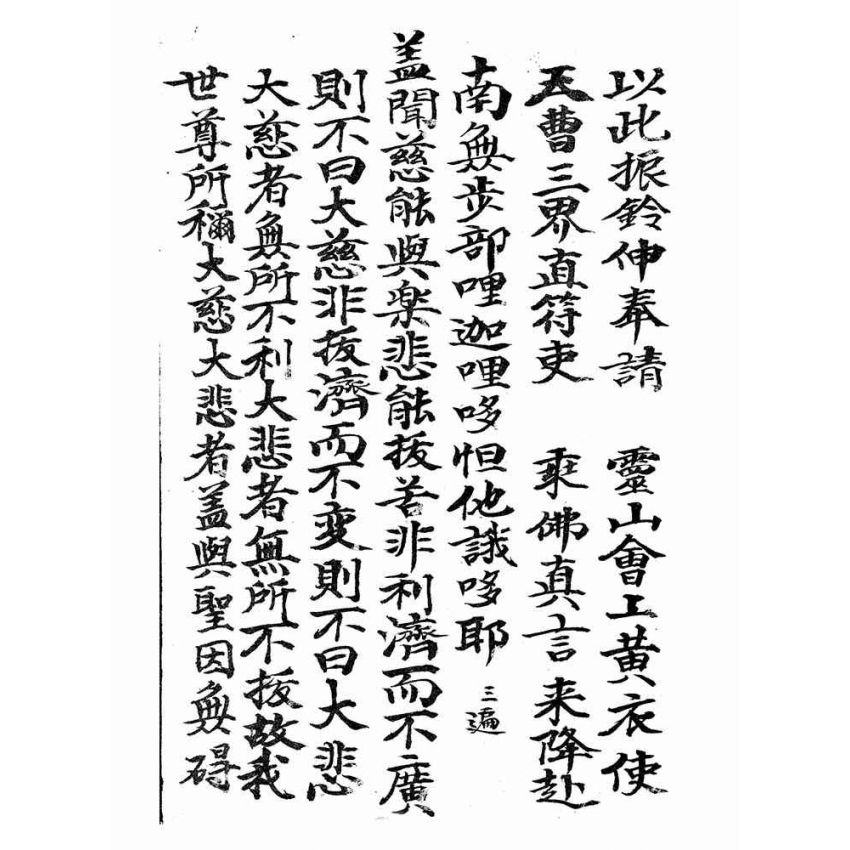 以此振鈴伸奉請　靈山會上黃衣使
天曹三界直符吏　乘佛真言来降赴
南無步部哩迦哩哆怛他誐哆耶 三遍
盖聞慈能與楽悲能拔苦非利濟而不廣
則不曰大慈非拔濟而不変則不曰大悲
大慈者無所不利大悲者無所不拔故我
世尊所稱大慈大悲者盖與聖因無碍